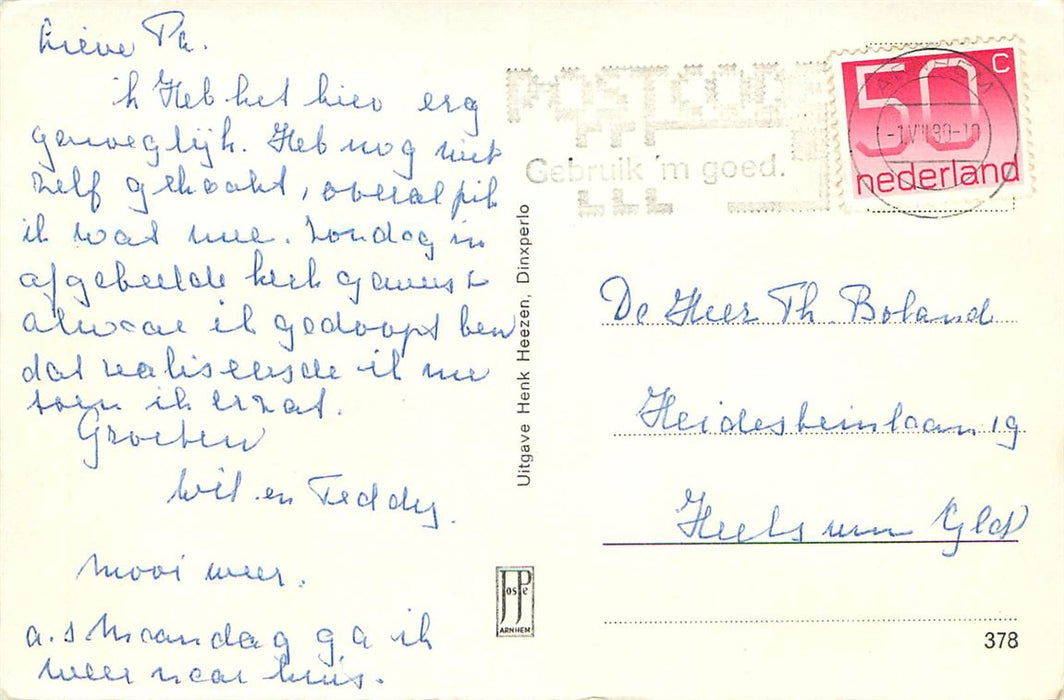 Lieve Th.
ik Heb het hier erg
genoeglijk. Heb nog niet
zelf gekookt, overal pik
ik wat mee. Zondag in
afgebeelde kerk geweest
alwaar ik gedoopt ben
dat realiseerde ik me
toen ik er zat.
Groeten
Wil en Teddy.
Mooi weer.
a.s Maandag ga ik
weer naar huis.
Uitgave Henk Heezen, Dinxperlo
JosPé
ARNHEM
POSTCODE
Gebruik 'm goed.
ARNHEM
-1.VII.80-10
50 c
nederland
De Heer Th. Boland
Heidesteinlaan 19
Heelsum Gld
378